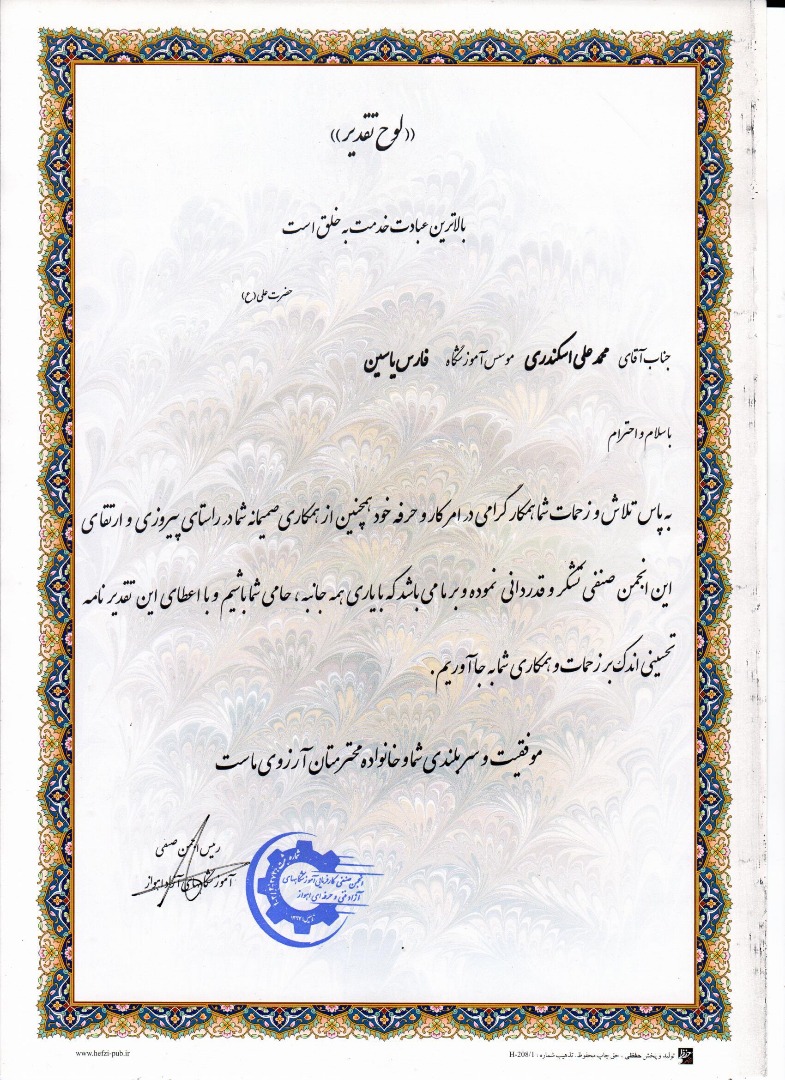 ((لوح تقدیر))
بالاترین عبادت خدمت به خلق است
حضرت علی (ع)
جناب آقای محمد علی اسکندری موسس آموزشگاه فارس یاسین
با سلام و احترام
به پاس تلاش و زحمات شما همکار گرامی در امر کار و حرفه خود همچنین از همکاری صمیمانه شما در راستای پیروزی و ارتقای
این انجمن صنفی تشکر و قدردانی نموده و بر ما می باشد که با یاری همه جانبه ، حامی شما باشیم و با اعطای این تقدیر نامه
تحسینی اندک بر زحمات و همکاری شما به جا آوریم .
موفقیت و سربلندی شما و خانواده محترمتان آرزوی ماست
رییس انجمن صنفی
آموزشگاههای آزاد اهواز
شماره ثبت:
انجمن صنفی کارفرمایی آموزشگاههای
آزاد فنی و حرفه ای اهواز
www.hefzi-pub.ir
تولید و پخش حفظی . حق چاپ محفوظ . تذهیب شماره : H-208/1